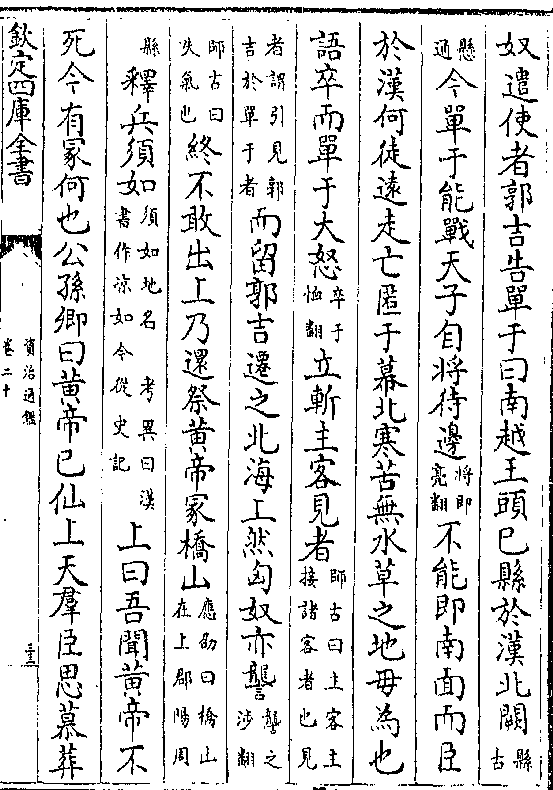 奴遣使者郭吉告單于曰南越王頭已縣於漢北闕縣古
懸通今單于能戰天子自將待邊將即亮翻不能即南面而臣
於漢何徒遠走亡匿于幕北寒苦無水草之地毋為也
語卒而單于大怒卒于恤翻立斬主客見者師古曰主客主接諸客者也見
者謂引見郭吉於單于者而留郭吉遷之北海上然匈奴亦讋讋之涉翻
師古曰失氣也終不敢出上乃還祭黃帝冢橋山應劭曰橋山在上郡陽周
縣釋兵須如須如地名考異曰漢書作涼如今從史記上曰吾聞黃帝不
死今有冢何也公孫卿曰黃帝已仙上天羣臣思慕葬
欽定四庫全書
資治通鑑
卷二十